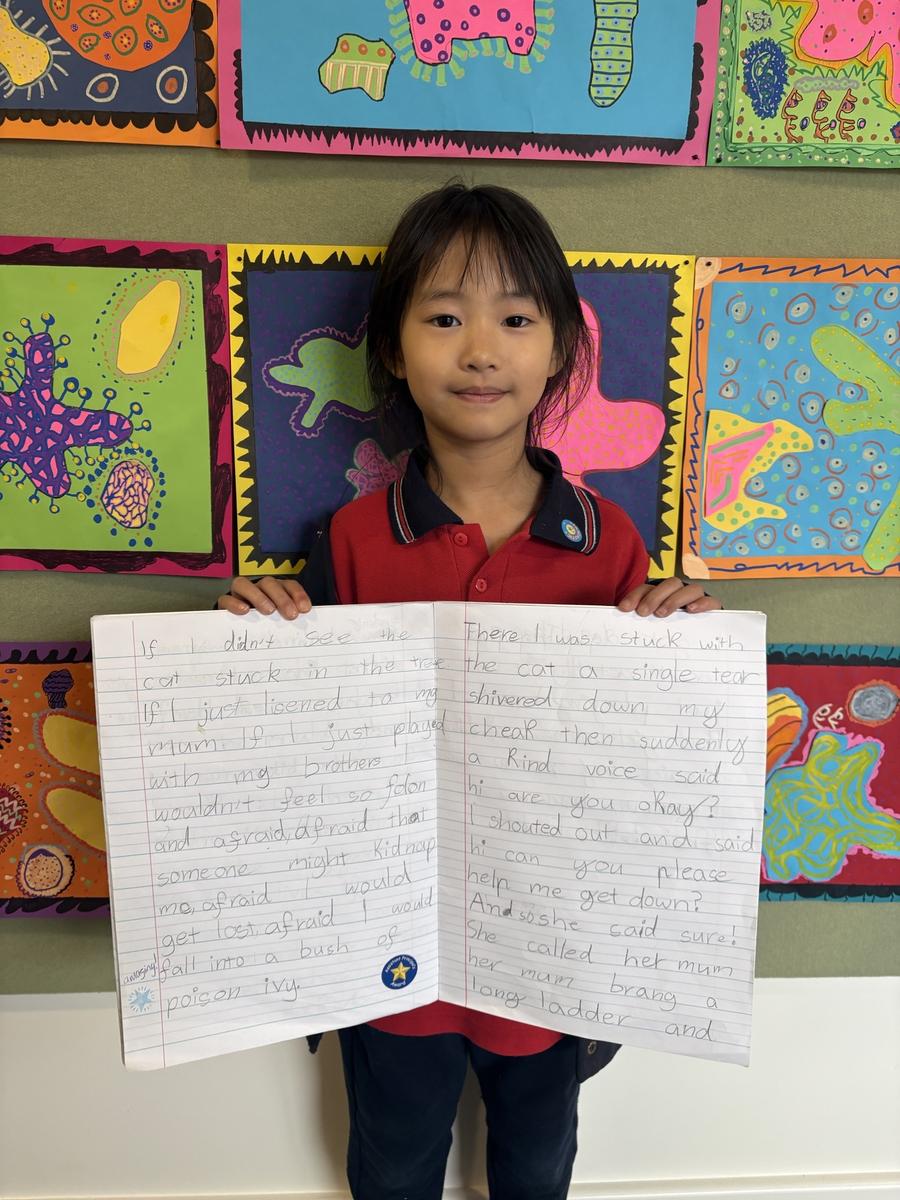 If I didn't see the
cat stuck in the tree
If I just lisened to my
mum If I just played
with my brothers I
wouldn't feel so folon
and afraid, afraid that
someone might kidnap
me, afraid I would
get lost, afraid I would
fall into a bush of
poison ivy.
amazing!
Assistant Principal's
Award
There I was stuck with
the cat a single tear
shivered down my
cheak then suddenly
a kind voice said
hi are you okay?
I shouted out and said
hi can you please
help me get down?
And so she said sure!
She called her mum
her mum brang a
long ladder and